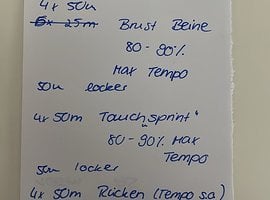 4 x 50m
6x 25m Brust Beine
80 - 90%
Max Tempo
50m locker
4 x 50m Tauch„sprint"
80 - 90% Max
Tempo
50m locker
4x 50m Rücken (Tempo s.o.)